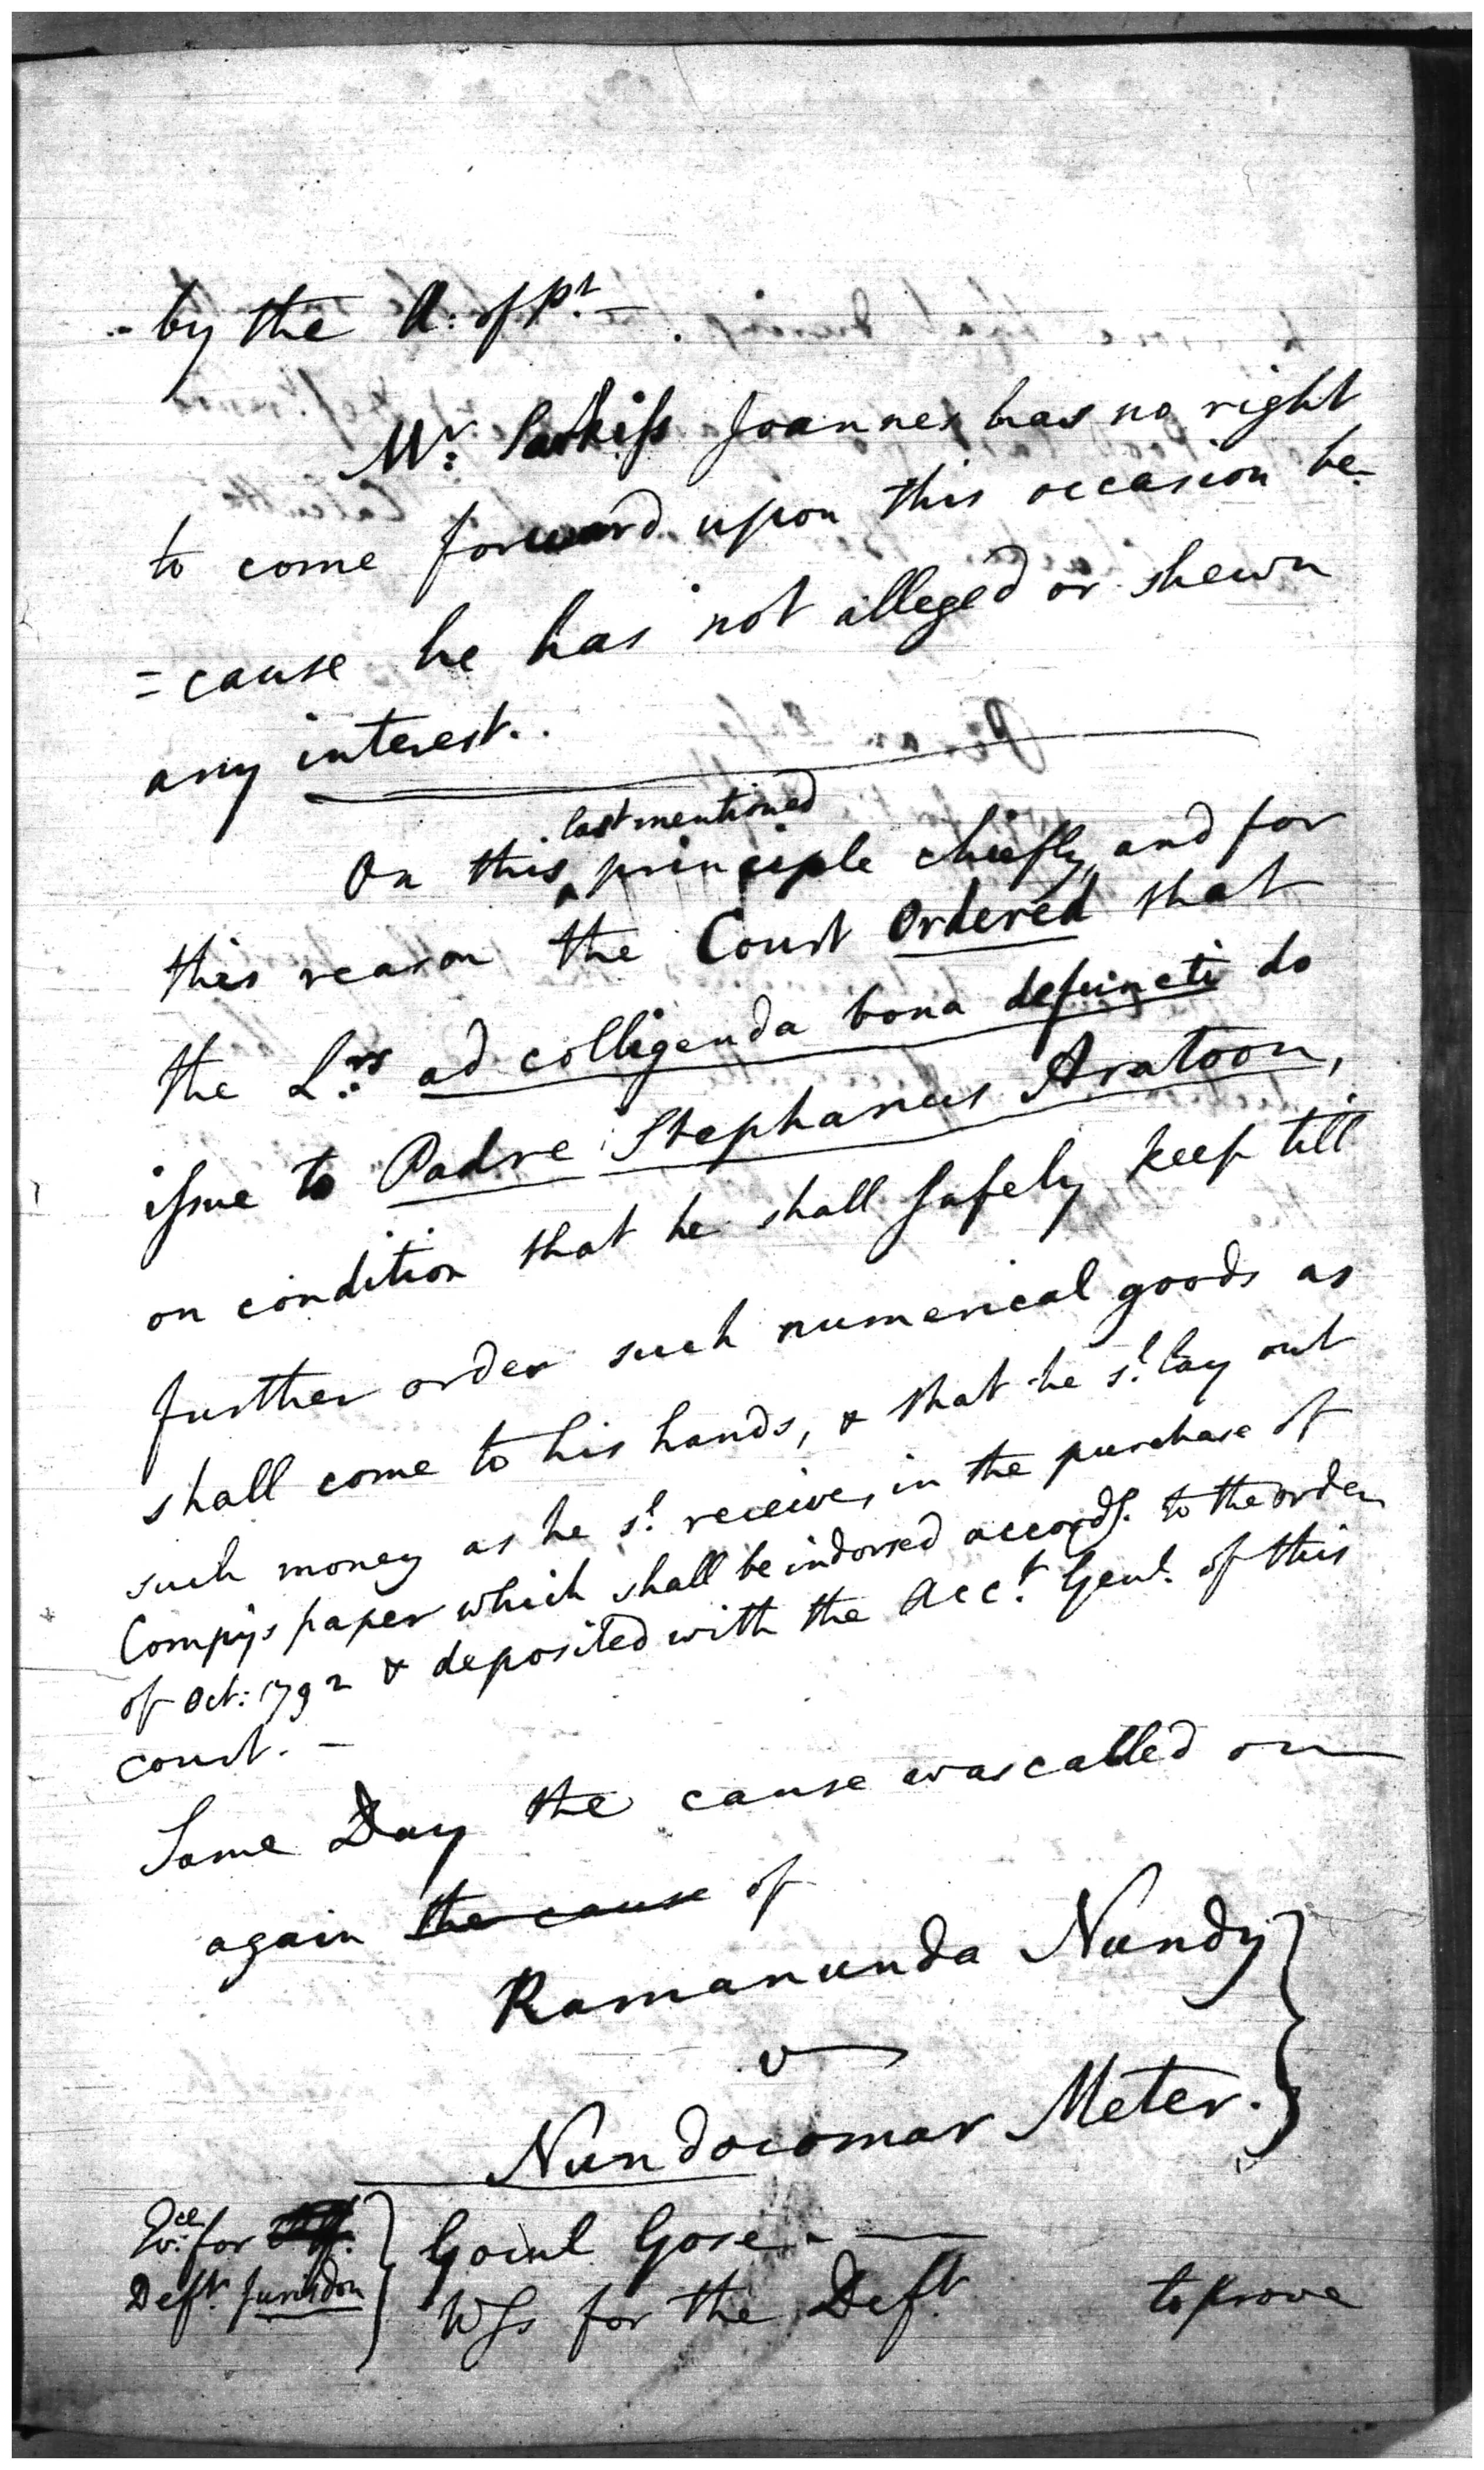 - by the A: of Pt. -
Mr: Sarkiss Joannes has no right
to come forward upon this occasion be-
=cause he has not alleged or shewn
any interest.
last mentioned
On this ^ principle chiefly, and for
this reason the Court Ordered that
the L:rs ad colligenda bona defuncti do
issue to Padre Stephanus Aratoon,
on condition that he shall safely keep till
further order such numerical goods as
shall come to his hands, & that he s.l lay out
such money as he s.l receive, in the purchase of
Compys paper which shall be indorsed accordg. to the order
of Oct: 1792 & deposited with the Acct. Genl. of this
court. -
Same Day the cause was called on
again the cause of
Ramanunda Nundy
v
Nundocomar Meter.
Evce: for
Deft. Jurisdon
Gocul Gose -
Wss for the Deft to prove